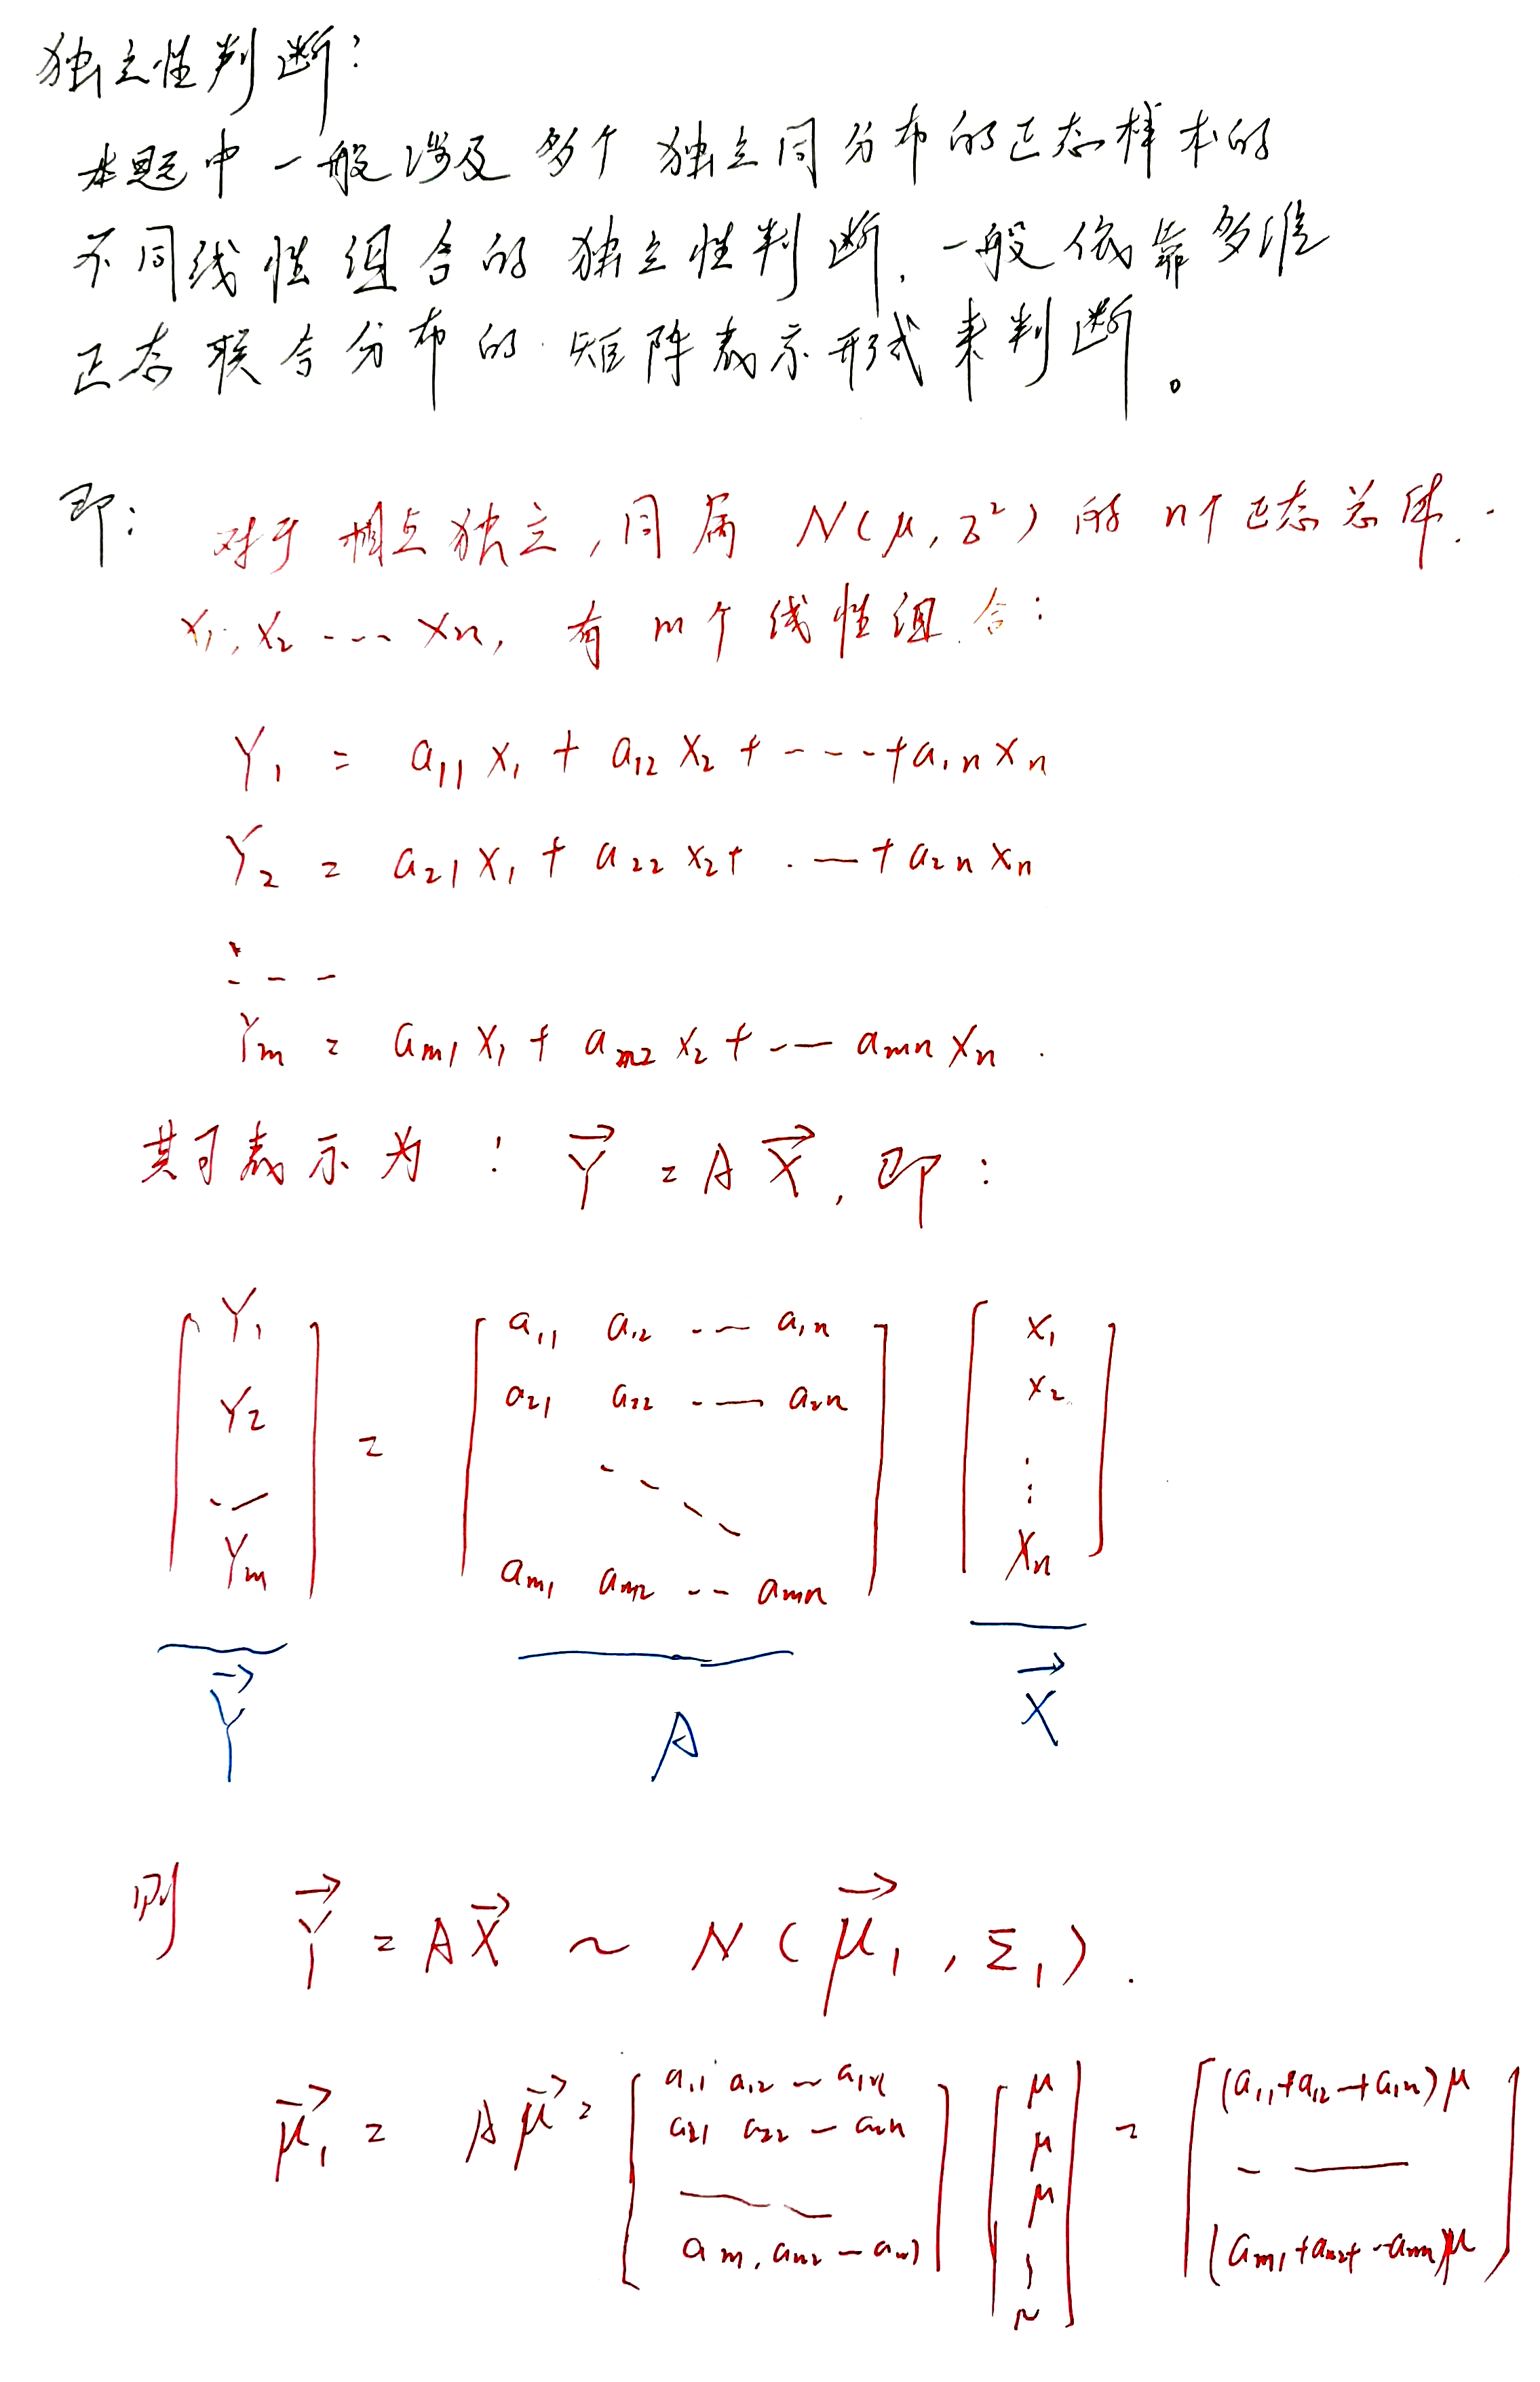 独立性判断：
本题中一般涉及多个独立同分布的正态样本的
不同线性组合的独立性判断，一般依靠多维
正态联合分布的矩阵表示形式来判断。
即： 对于相互独立，同属 N(μ, σ²) 的 n个正态总体.
x₁, x₂ ---- xₙ, 有 m个线性组合：
Y₁ = a₁₁x₁ + a₁₂x₂ + ---- + a₁ₙxₙ
Y₂ = a₂₁x₁ + a₂₂x₂ + ·— + a₂ₙxₙ
⋮ - -
Yₘ = aₘ₁x₁ + aₘ₂x₂ + -— aₘₙxₙ .
其可表示为： Y⃗ = AX⃗, 即：
[Y₁ Y₂ ·— Yₘ] = [a₁₁ a₁₂ -— a₁ₙ
a₂₁ a₂₂ -— a₂ₙ
- - - -
aₘ₁ aₘ₂ -- aₘₙ] [x₁ x₂ ⋮ xₙ]
Y⃗ A X⃗
则 Y⃗ = AX⃗ ~ N(μ⃗₁, Σ₁).
μ⃗₁ = Aμ⃗ = [a₁₁ a₁₂ — a₁ₙ
a₂₁ a₂₂ — a₂ₙ
— - —
aₘ₁ aₘ₂ — aₘₙ] [μ μ μ ⋮ μ] = [(a₁₁+a₁₂ — +a₁ₙ)μ
- —
(aₘ₁+aₘ₂+ -- aₘₙ)μ]